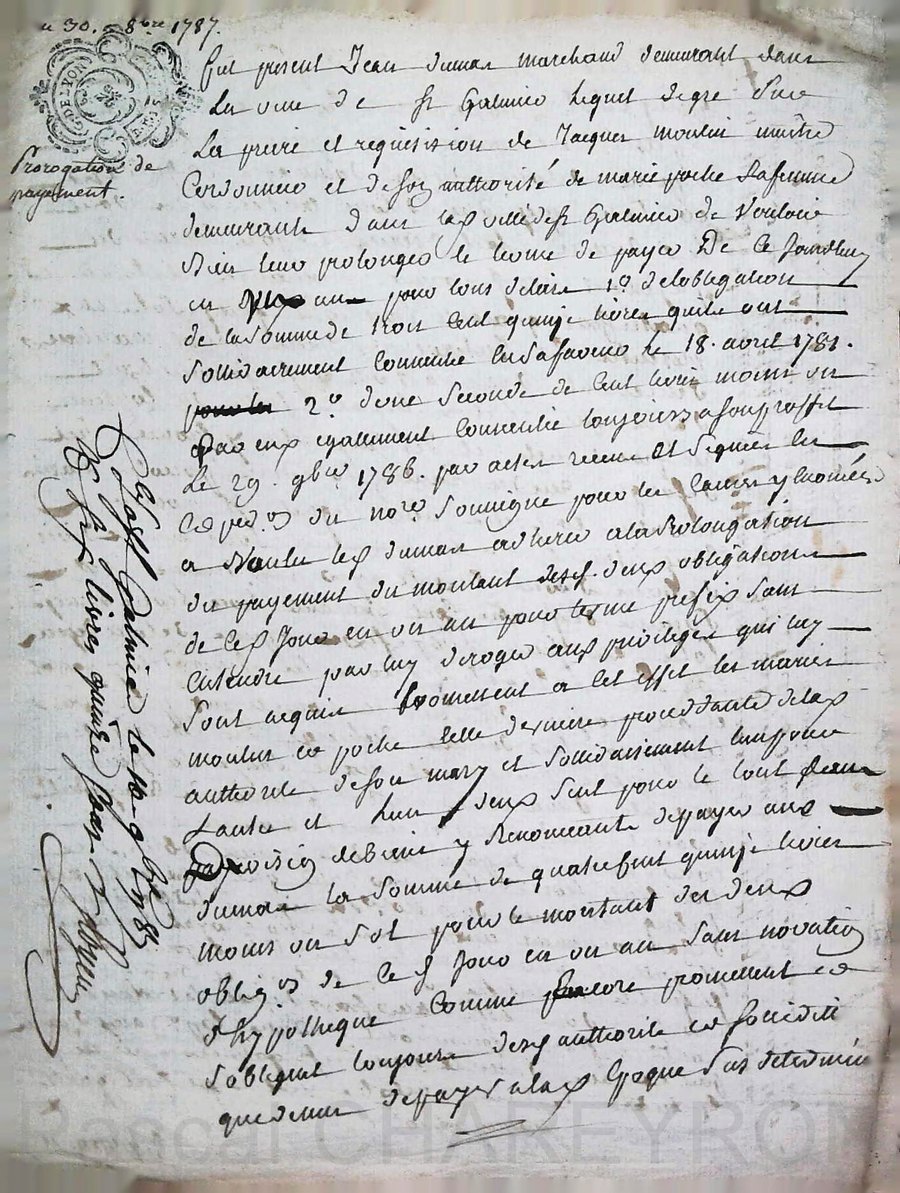 30. 8bre 1787.
G. DE LYON
Prorogation de
payement.
fut present Jean dumas marchand demeurant dans
La ville de st Galmier Lequel de gré Sur
La priere et requisision de Jacques moulin maitre
Cordonnier et de son authorité de marie poche Sa femme
demeurants dans la de st Galmier de Vouloir
bien leur prolonger le terme de payer De Ce Jourdhuy
en un an pour tous delais 1o. de lobligation
de la Somme de trois Cent quinze livres quils ont
Sollidairement Consentie en Sa faveur le 18. avril 1781.
2o. dune Seconde de Cent livres moins un
par eux egalement Consentie toujours a Son proffit
Le 29. 9bre 1786. par actes recus et Signes
du nore. Soussigne pour les Causes y Enoncées
a dumas adherer a la Prolongation
du payement du montant des deux obligations
de Ce Jour en un an pour terme prefix Sans
Entendre par luy deroger aux privileges qui luy
Sont acquis promettent a Cet effet les maries
moulin et poche Elle derniere procedante de la
authorité de Son mary et Sollidairement Lun pour
Lautre et Lun deux Seul pour le tout Sans
division de Biens y Renonceants de payer aux
dumas la Somme de quatre Cent quinze livres
moins un Sol pour le montant des deux
oblig. de Ce Jour en un an Sans novation
d'hypotheque Comme promettent et
Sobligent toujours authorité et Sollidité
que dessus de payer a la Epoque Sus determinée
Cle a st Galmier le 10 9bre 1787
livres quinze Sols
Pascal CHAREYRON